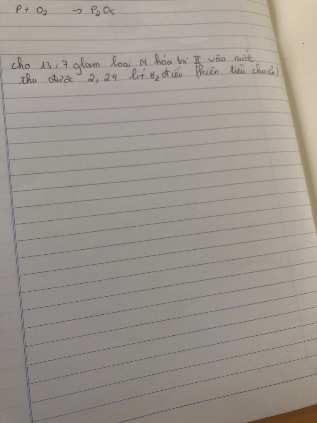 P + O2 → P2O5
cho 13,7 glam loại M hóa trị II vào nước
thu được 2,24 lít H2 ở điều (kiện tiêu chuẩn)